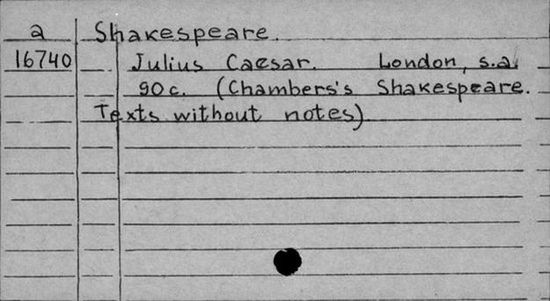 a Shakespeare.
16740 Julius Caesar. London, s.a.
90 c. (Chambers's Shakespeare.
Texts without notes)